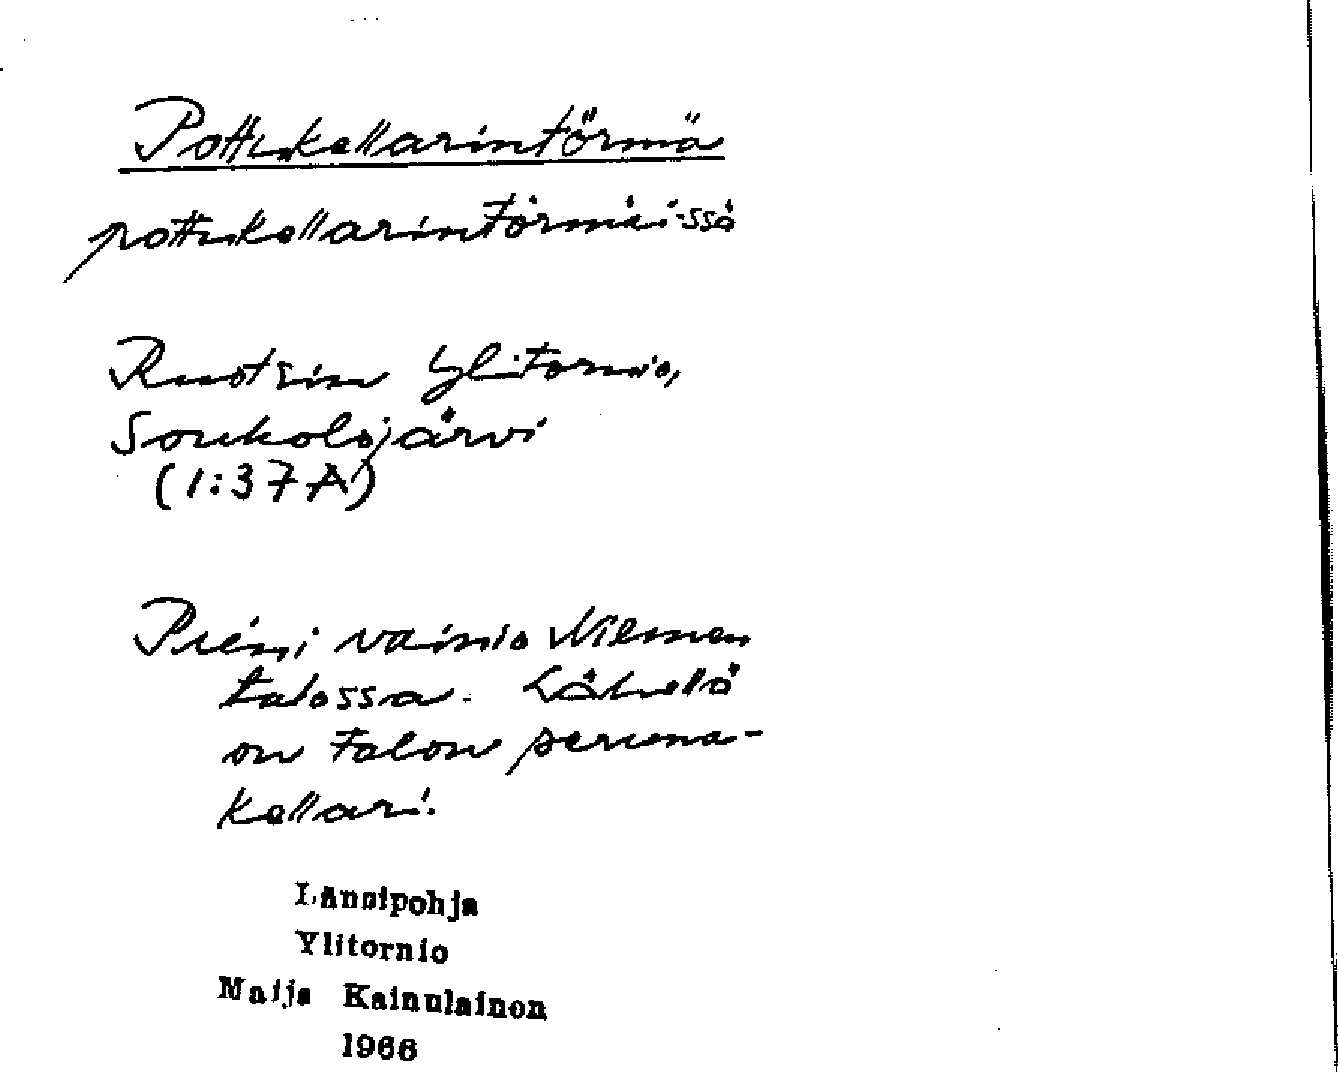 Pottukellarintörmä
pottukellarintörmäissä
Ruotsin Ylitornio,
Soukolojärvi
(1:37A)
Pieni vainio Niemen
talossa. Lähellä
on talon peruna-
kellari.
Länsipohja
Ylitornio
Maija Kainulainen
1966